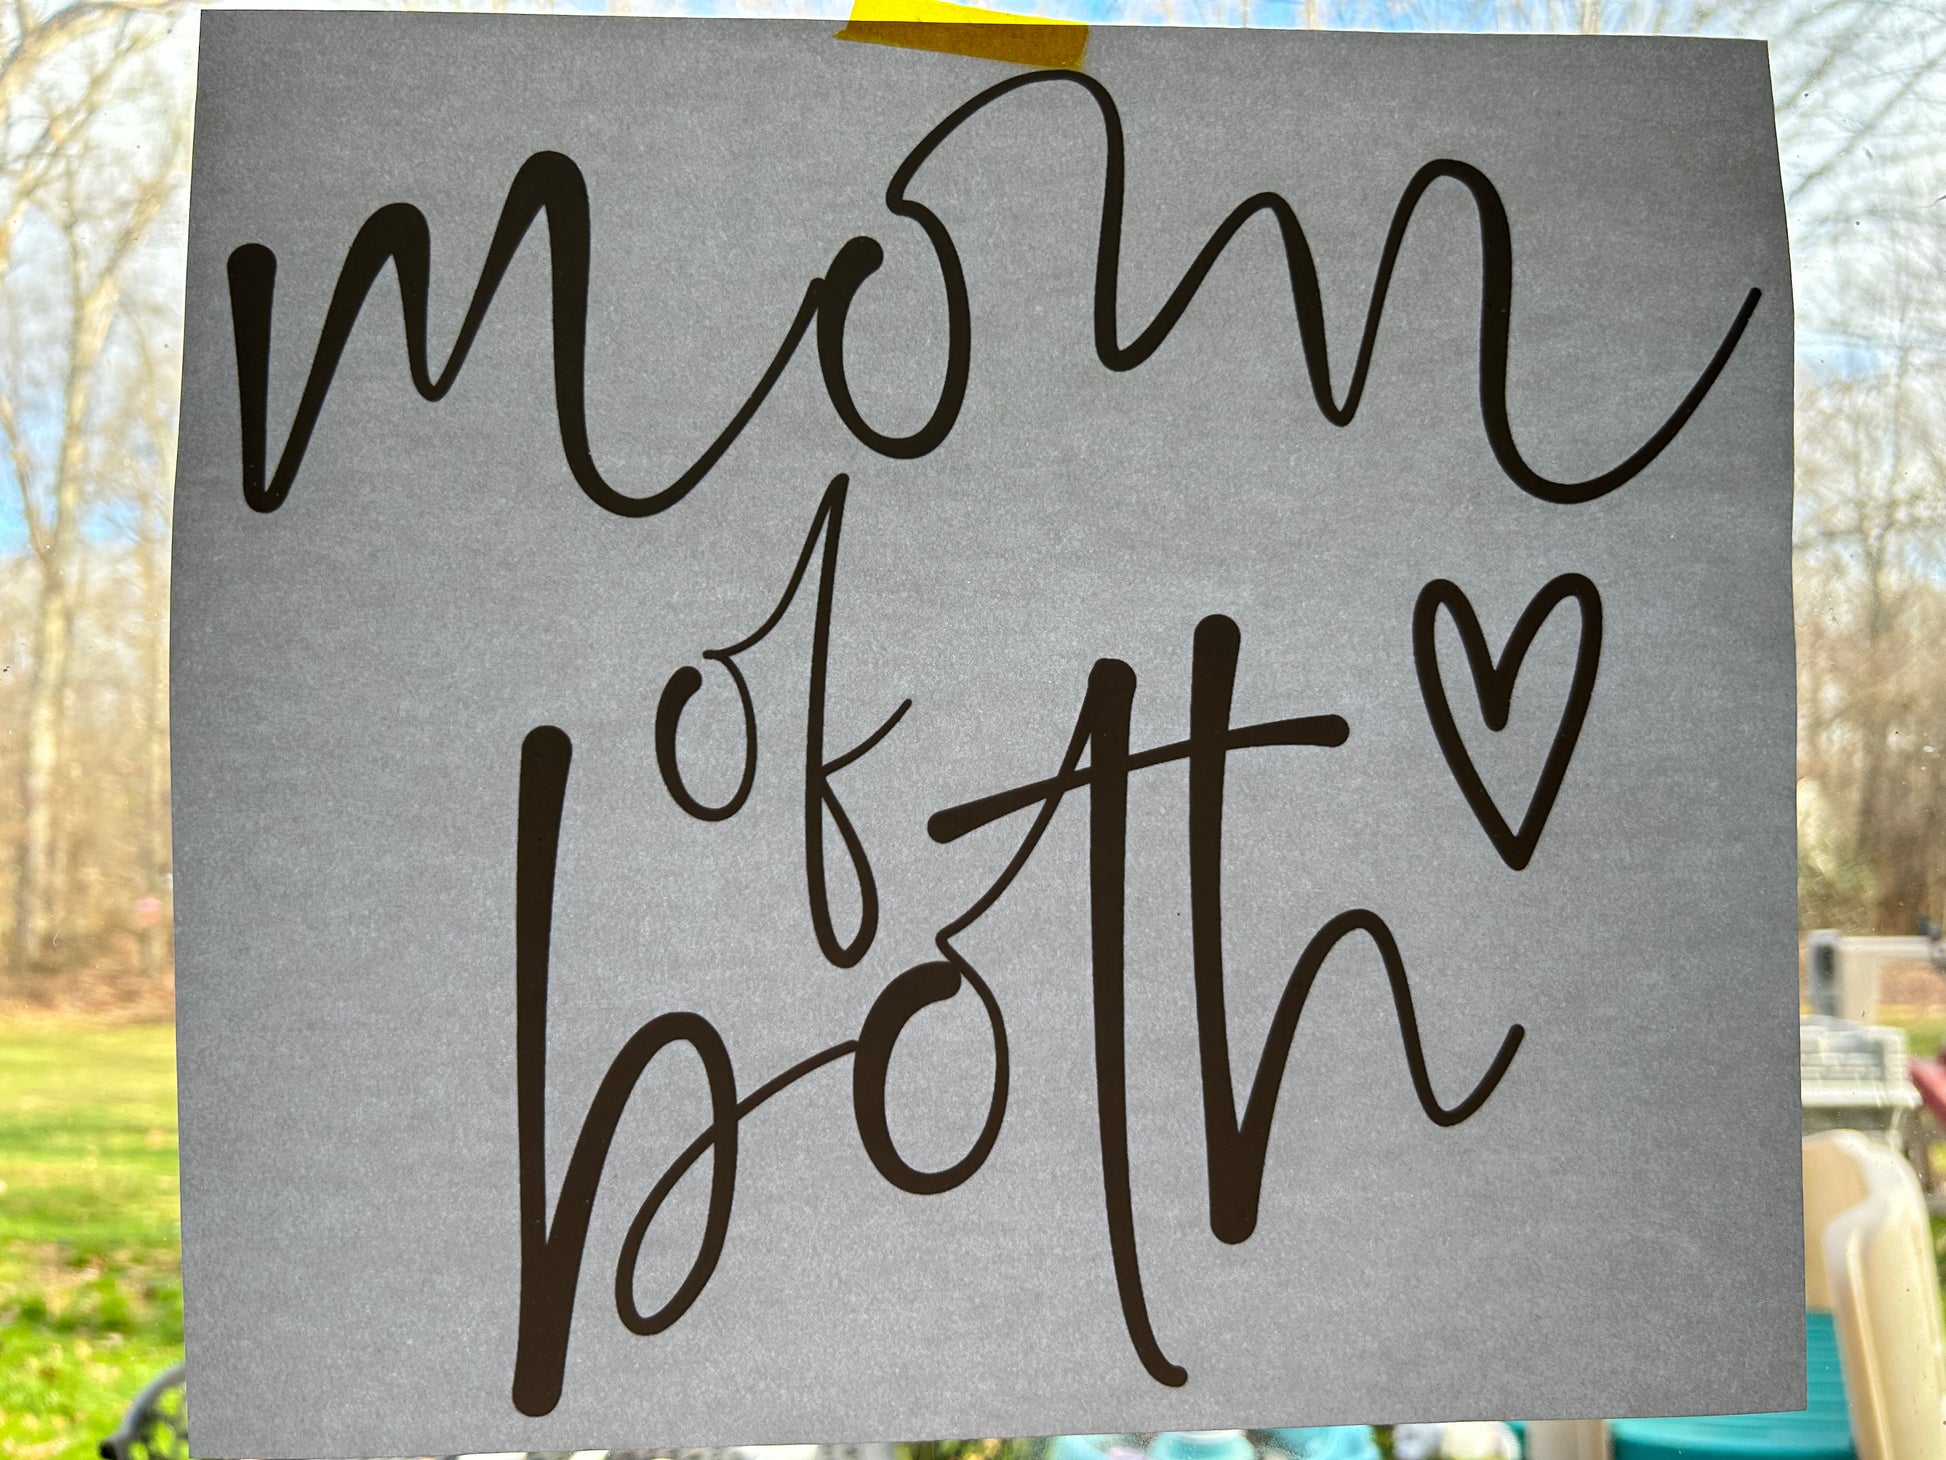 mom
of
both